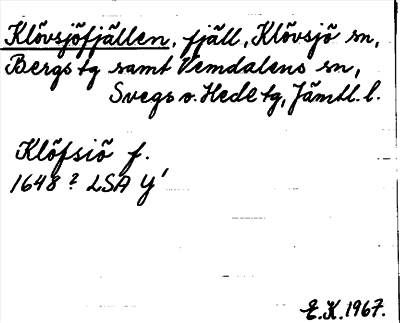 Klövsjöfjällen, fjäll, Klövsjö sn,
Bergs tg samt Vemdalens sn,
Svegs o. Hede tg, Jämtl. l.
Klöfsiö f.
1648? LSA Y'
E.K. 1967.